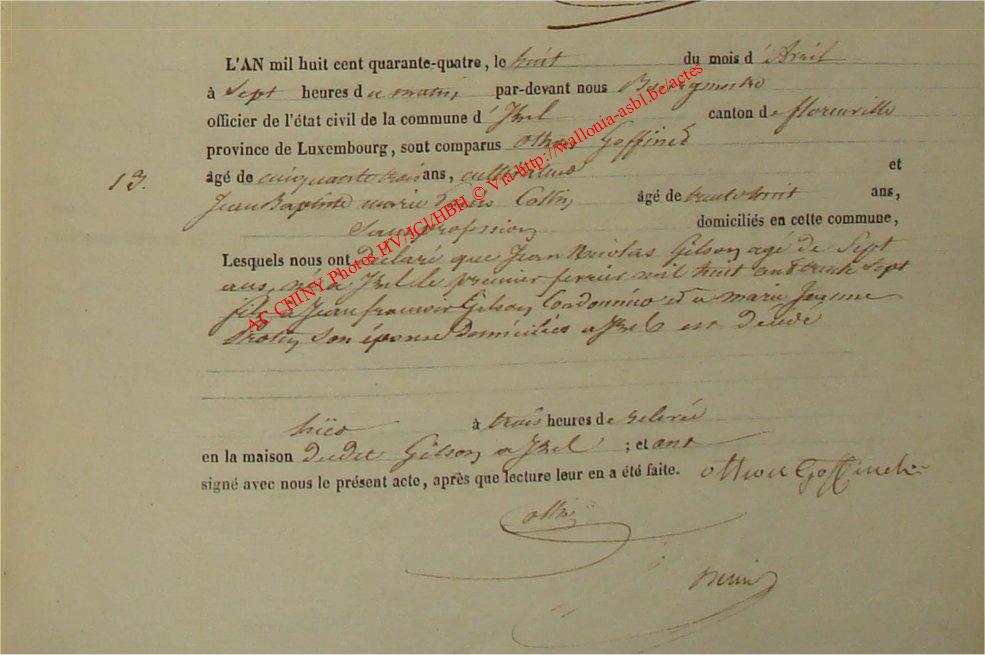 L'AN mil huit cent quarante-quatre, le huit du mois d'Avril
à Sept heures du matin, par-devant nous Bourgmestre
officier de l'état civil de la commune d'Izel canton de florenville
province de Luxembourg, sont comparus Goffinet
13. âgé de cinquante trois ans, cultivateur et
Jean Baptiste marie Collin, âgé de trente huit ans,
Sans profession domiciliés en cette commune,
Lesquels nous ont déclaré que Jean Nicolas Gilson agé de Sept
ans, né a Izel le premier fevrier mil huit cent trente Sept
fils de Jean françois Gilson Cordonnier et a marie Jeanne
Son épouse domiciliés a Izel est décédé
hier à trois heures de relevée
en la maison dudit Gilson a Izel ; et ont
signé avec nous le présent acte, après que lecture leur en a été faite. Goffinet
Collin
AC CHINY Photos HV/JCl/HBH © Via-http://wallonia-asbl.be/actes